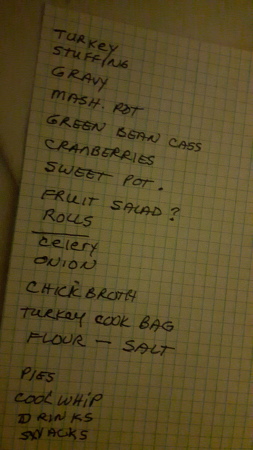 TURKEY
STUFFING
GRAVY
MASH. POT
GREEN BEAN CASS
CRANBERRIES
SWEET POT.
FRUIT SALAD?
ROLLS
Celery
ONION
CHICK BROTH
TURKEY COOK BAG
FLOUR — SALT
PIES
COOL WHIP
DRINKS
SNACKS